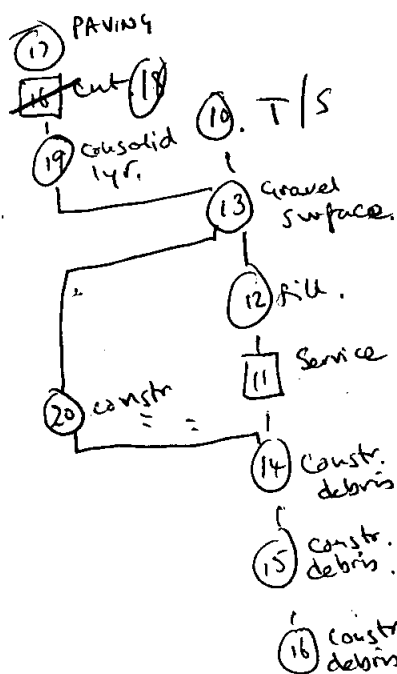 17 PAVING
cut 18
19 consolid
lyr.
10. T/S
13 Gravel
surface.
12 fill.
11 Service
20 constr
" "
14 Constr.
debris
15 constr.
debris.
16 constr
debris